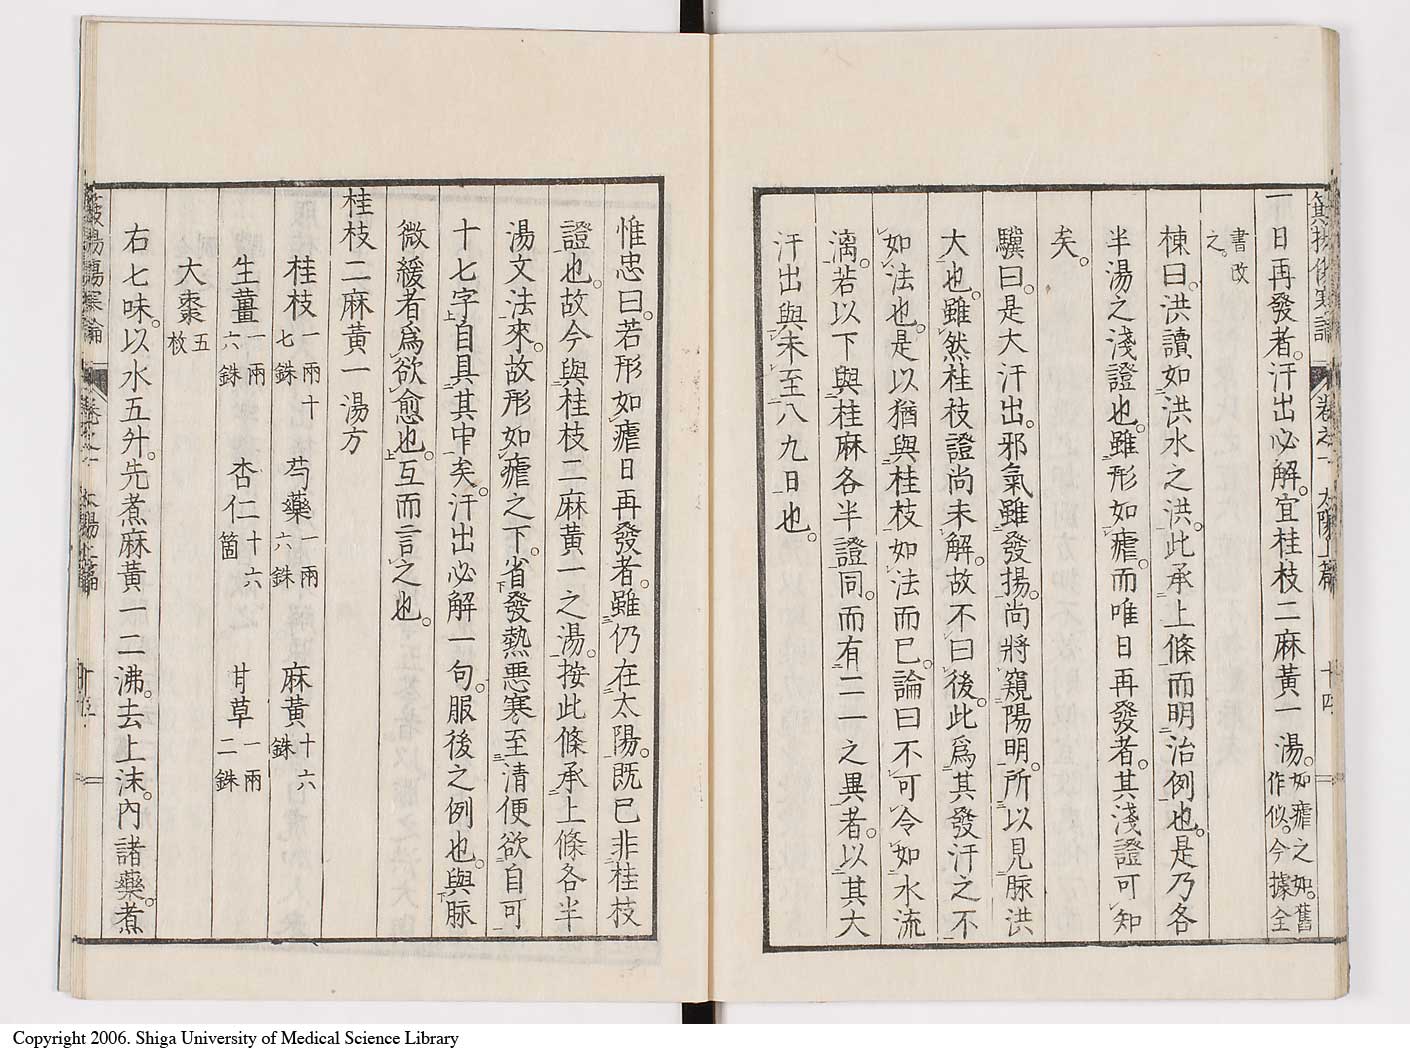 一日再發者。汗出必解。宜桂枝二麻黃一湯。如瘧之如。舊作似。今據全
書改之。
棟曰。洪讀如洪水之洪。此承上條而明治例也。是乃各
半湯之淺證也。雖形如瘧。而唯日再發者。其淺證可知
矣。
驥曰。是大汗出。邪氣雖發揚。尚將窺陽明。所以見脈洪
大也。雖然桂枝證尚未解。故不曰後。此爲其發汗之不
如法也。是以猶與桂枝如法而已。論曰不可令如水流
漓。若以下與桂麻各半證同。而有二一之異者。以其大
汗出與未至八九日也。
卷之一 太陽上篇 十四
惟忠曰。若形如瘧日再發者。雖仍在太陽。既已非桂枝
證也。故今與桂枝二麻黃一之湯。按此條承上條各半
湯文法來。故形如瘧之下。省發熱惡寒至清便欲自可
十七字自具其中矣。汗出必解一句。服後之例也。與脈
微緩者爲欲愈也。互而言之也。
桂枝二麻黃一湯方
桂枝一兩十七銖 芍藥一兩六銖 麻黃十六銖
生薑一兩六銖 杏仁十六箇 甘草一兩二銖
大棗五枚
右七味。以水五升。先煮麻黃一二沸。去上沫。內諸藥。煮
Copyright 2006. Shiga University of Medical Science Library